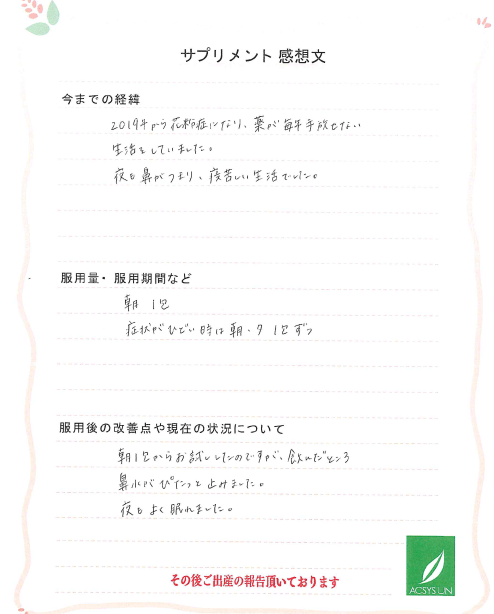 サプリメント 感想文
今までの経緯
2019年から花粉症になり、薬が毎年手放せない
生活をしていました。
夜も鼻がつまり、寝苦しい生活でした。
服用量・服用期間など
朝 1包
症状がひどい時は朝・夕 1包ずつ
服用後の改善点や現在の状況について
朝1包からお試ししたのですが、飲んだところ
鼻水がぴたっと止みました。
夜もよく眠れました。
その後ご出産の報告頂いております
ACSYS UN